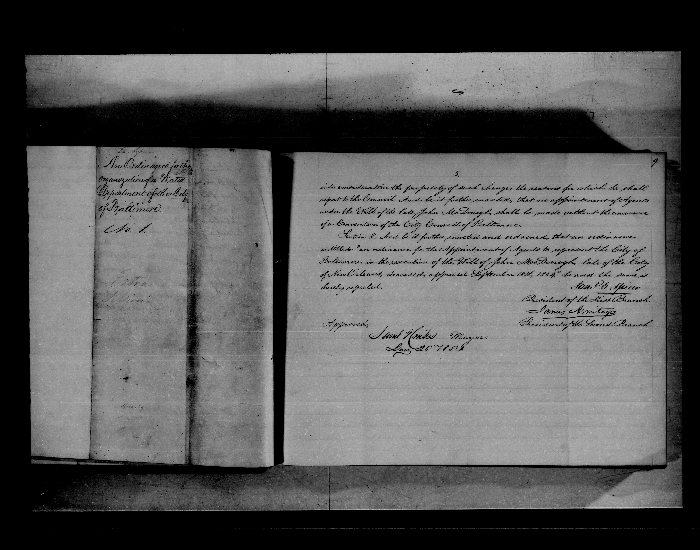 An Ordinance for the
organization of a Water
Department of the City
of Baltimore
No. 1.
5.
9
into consideration the propriety of such changes the reasons for which he shall
report to the Council. And be it further enacted, that no appointment of Agents
under the Will of the late, John McDonogh, shall be made without the concurrence
of a Convention of the City Council of Baltimore.
Section 5. And be it further enacted and ordained, that an ordinance
entitled "an ordinance for the appointment of Agents to represent the City of
Baltimore in the execution of the Will of John McDonogh late of the City
of New Orleans, deceased, approved September 18th, 1854" be and the same is
hereby repealed.
President of the First Branch
James Armitage
President of the Second Branch
Approved,
Saml Hinks Mayor.
25th 185